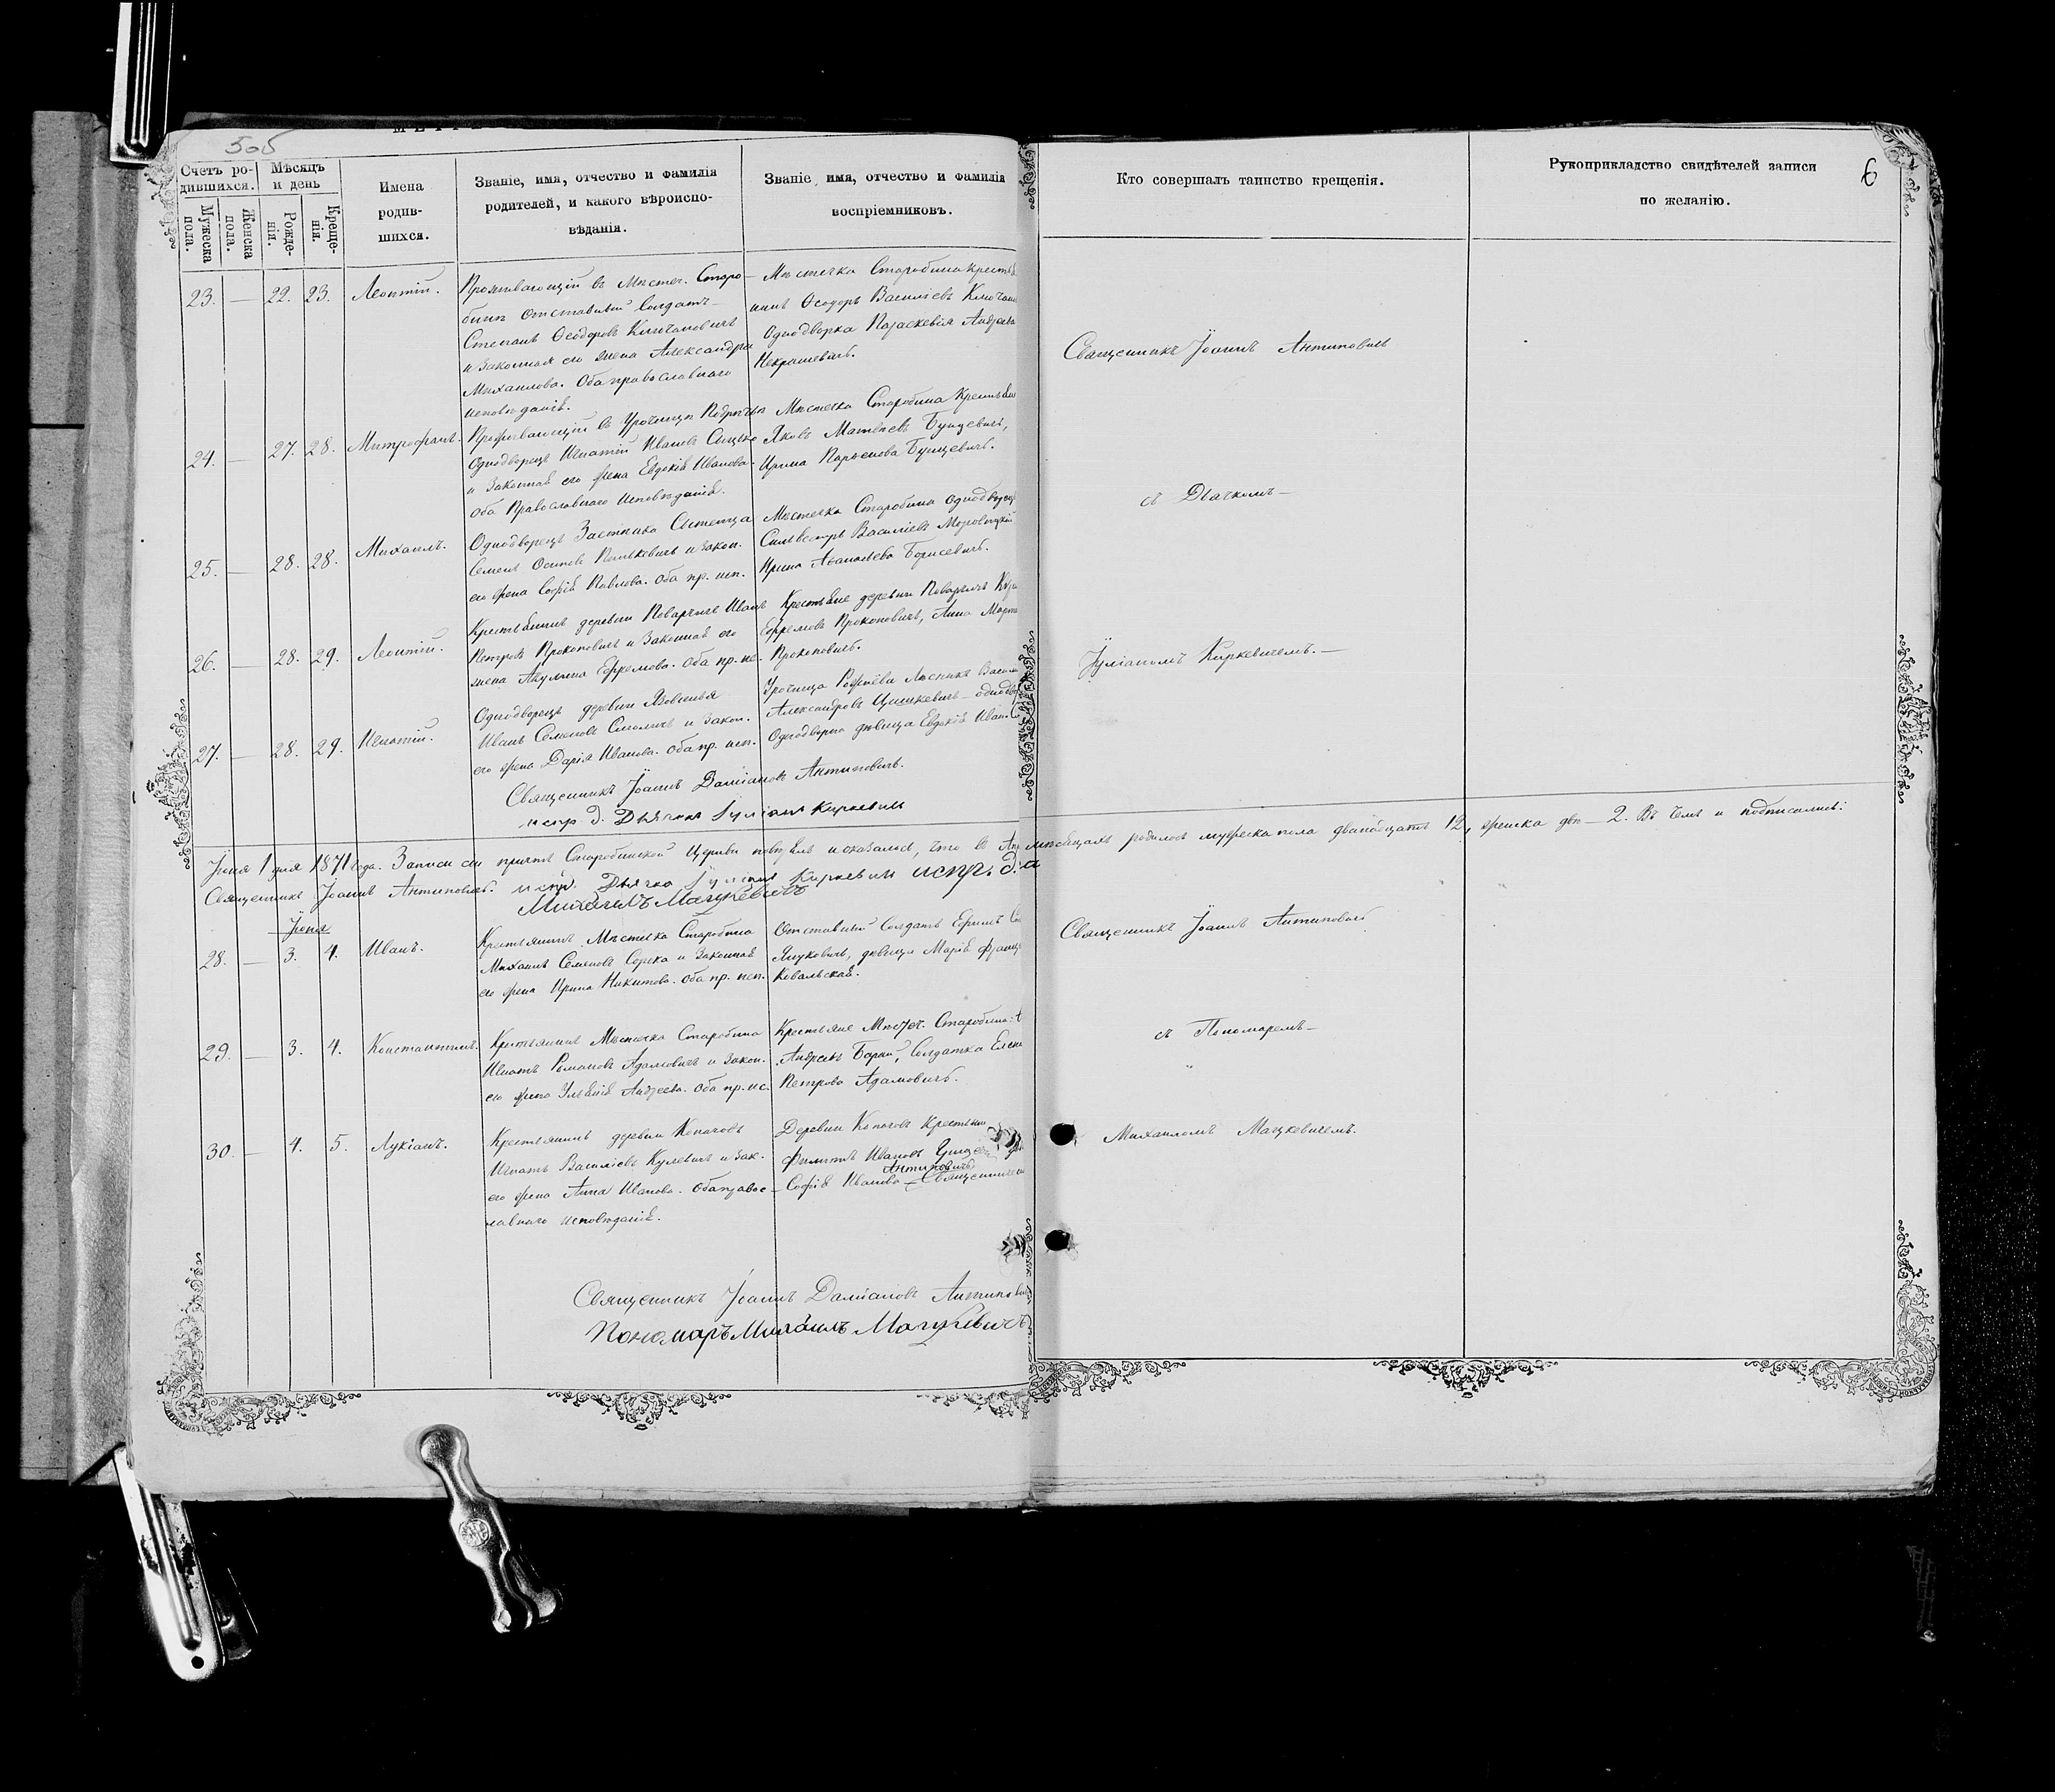 505
Счетъ ро-
дившихся.
Мѣсяцъ
и день
Мужеска
пола.
Женска
пола.
Рожде-
нія.
Креще-
нія.
Имена
родив-
шихся.
Званіе, имя, отчество и фамилія
родителей, и какого вѣроиспо-
вѣданія.
Званіе, имя, отчество и фамилія
воспріемниковъ.
Кто совершалъ таинство крещенія.
Рукоприкладство свидѣтелей записи
по желанію.
6
23. — 22. 23. Леонтій.
Проживающій въ Мѣстеч. Старо-
бинѣ отставный Солдатъ
Стефанъ Ѳеодоровъ Ключановичъ
и Законная его жена Александра
Михаилова. Оба православнаго
исповѣданія.
Мѣстечка Старобина крестья
нинъ Ѳеодоръ Василіевъ
Однодворка Параскевія Андреева
Некрашевичъ.
Священникъ Іоаннъ Антиповичъ
24. — 27. 28. Митрофанъ.
Проживающій въ Урочищѣ
Однодворецъ Игнатій Ивановъ
и Законная его жена Евдокія Иванова
Оба Православнаго Исповѣданія.
Мѣстечка Старобина Крестьяне
Яковъ Матвѣевъ Бунцевичъ,
Ирина Парѳенова Бунцевичъ.
съ Дьячкомъ —
25. — 28. 28. Михаилъ.
Однодворецъ Застѣнка
Семенъ Осиповъ и Закон.
его жена Софія Павлова. Оба пр. исп.
Мѣстечка Старобина Однодворецъ
Сильвестръ Василіевъ
Ирина Аѳанасіева Борисевичъ.
26. — 28. 29. Леонтій.
Крестьянинъ деревни Поварчичъ Иванъ
Петровъ Прокоповичъ и Законная его
жена Акулина Ефремова. Оба пр. ис.
Крестьяне деревни Поварчичъ
Ефремовъ Прокоповичъ, Анна
Прокоповичъ.
Іуліаномъ Киркевичемъ. —
27. — 28. 29. Игнатій.
Однодворецъ деревни
Иванъ Семеновъ Смоличъ и Закон.
его жена Дарія Иванова. Оба пр. исп.
Урочища Лѣсникъ
Александровъ Цишкевичъ —
Однодворка дѣвица Евдокія Иван.
Священникъ Іоаннъ Даміановъ Антиповичъ.
испр д. Дьячка Іуліанъ Киркевичъ
Іюня 1 дня 1871 года. Записи сіи причтъ Старобинской Церкви повѣрялъ и оказалось, что въ мѣсяцахъ родилось мужеска пола двѣнадцать 12, женска двѣ — 2. Въ чемъ и подписались:
Священникъ Іоаннъ Антиповичъ. испр. Дьячка Іуліанъ Киркевичъ испр. д.
Михаилъ Мацкевичъ
Іюня
28. — 3. 4. Иванъ.
Крестьянинъ Мѣстечка Старобина
Михаилъ Семеновъ Сорока и Законная
его жена Ирина Никитова. Оба пр. исп.
Отставный Солдатъ Ефимъ
Януковичъ, дѣвица Марія
Ковальская.
Священникъ Іоаннъ Антиповичъ
29. — 3. 4. Константинъ.
Крестьянинъ Мѣстечка Старобина
Игнатъ Романовъ Адамовичъ и Закон.
его жена Андреева. Оба пр. ис.
Крестьяне Мѣстеч. Старобина:
Андреевъ, Солдатка Елена
Петрова Адамовичъ.
съ Пономаремъ —
30. — 4. 5. Лукіанъ.
Крестьянинъ деревни Копачовъ
Игнатъ Василіевъ Кулевичъ и Зак.
его жена Анна Иванова. Оба правос-
лавнаго исповѣданія.
Деревни Копачовъ Крестьян
Филиппъ Ивановъ
Антиповичъ
Софія Иванова — Священническая
Михаиломъ Мацкевичемъ.
Священникъ Іоаннъ Даміановъ Антиповичъ
Пономарь Михаилъ Мацкевичъ